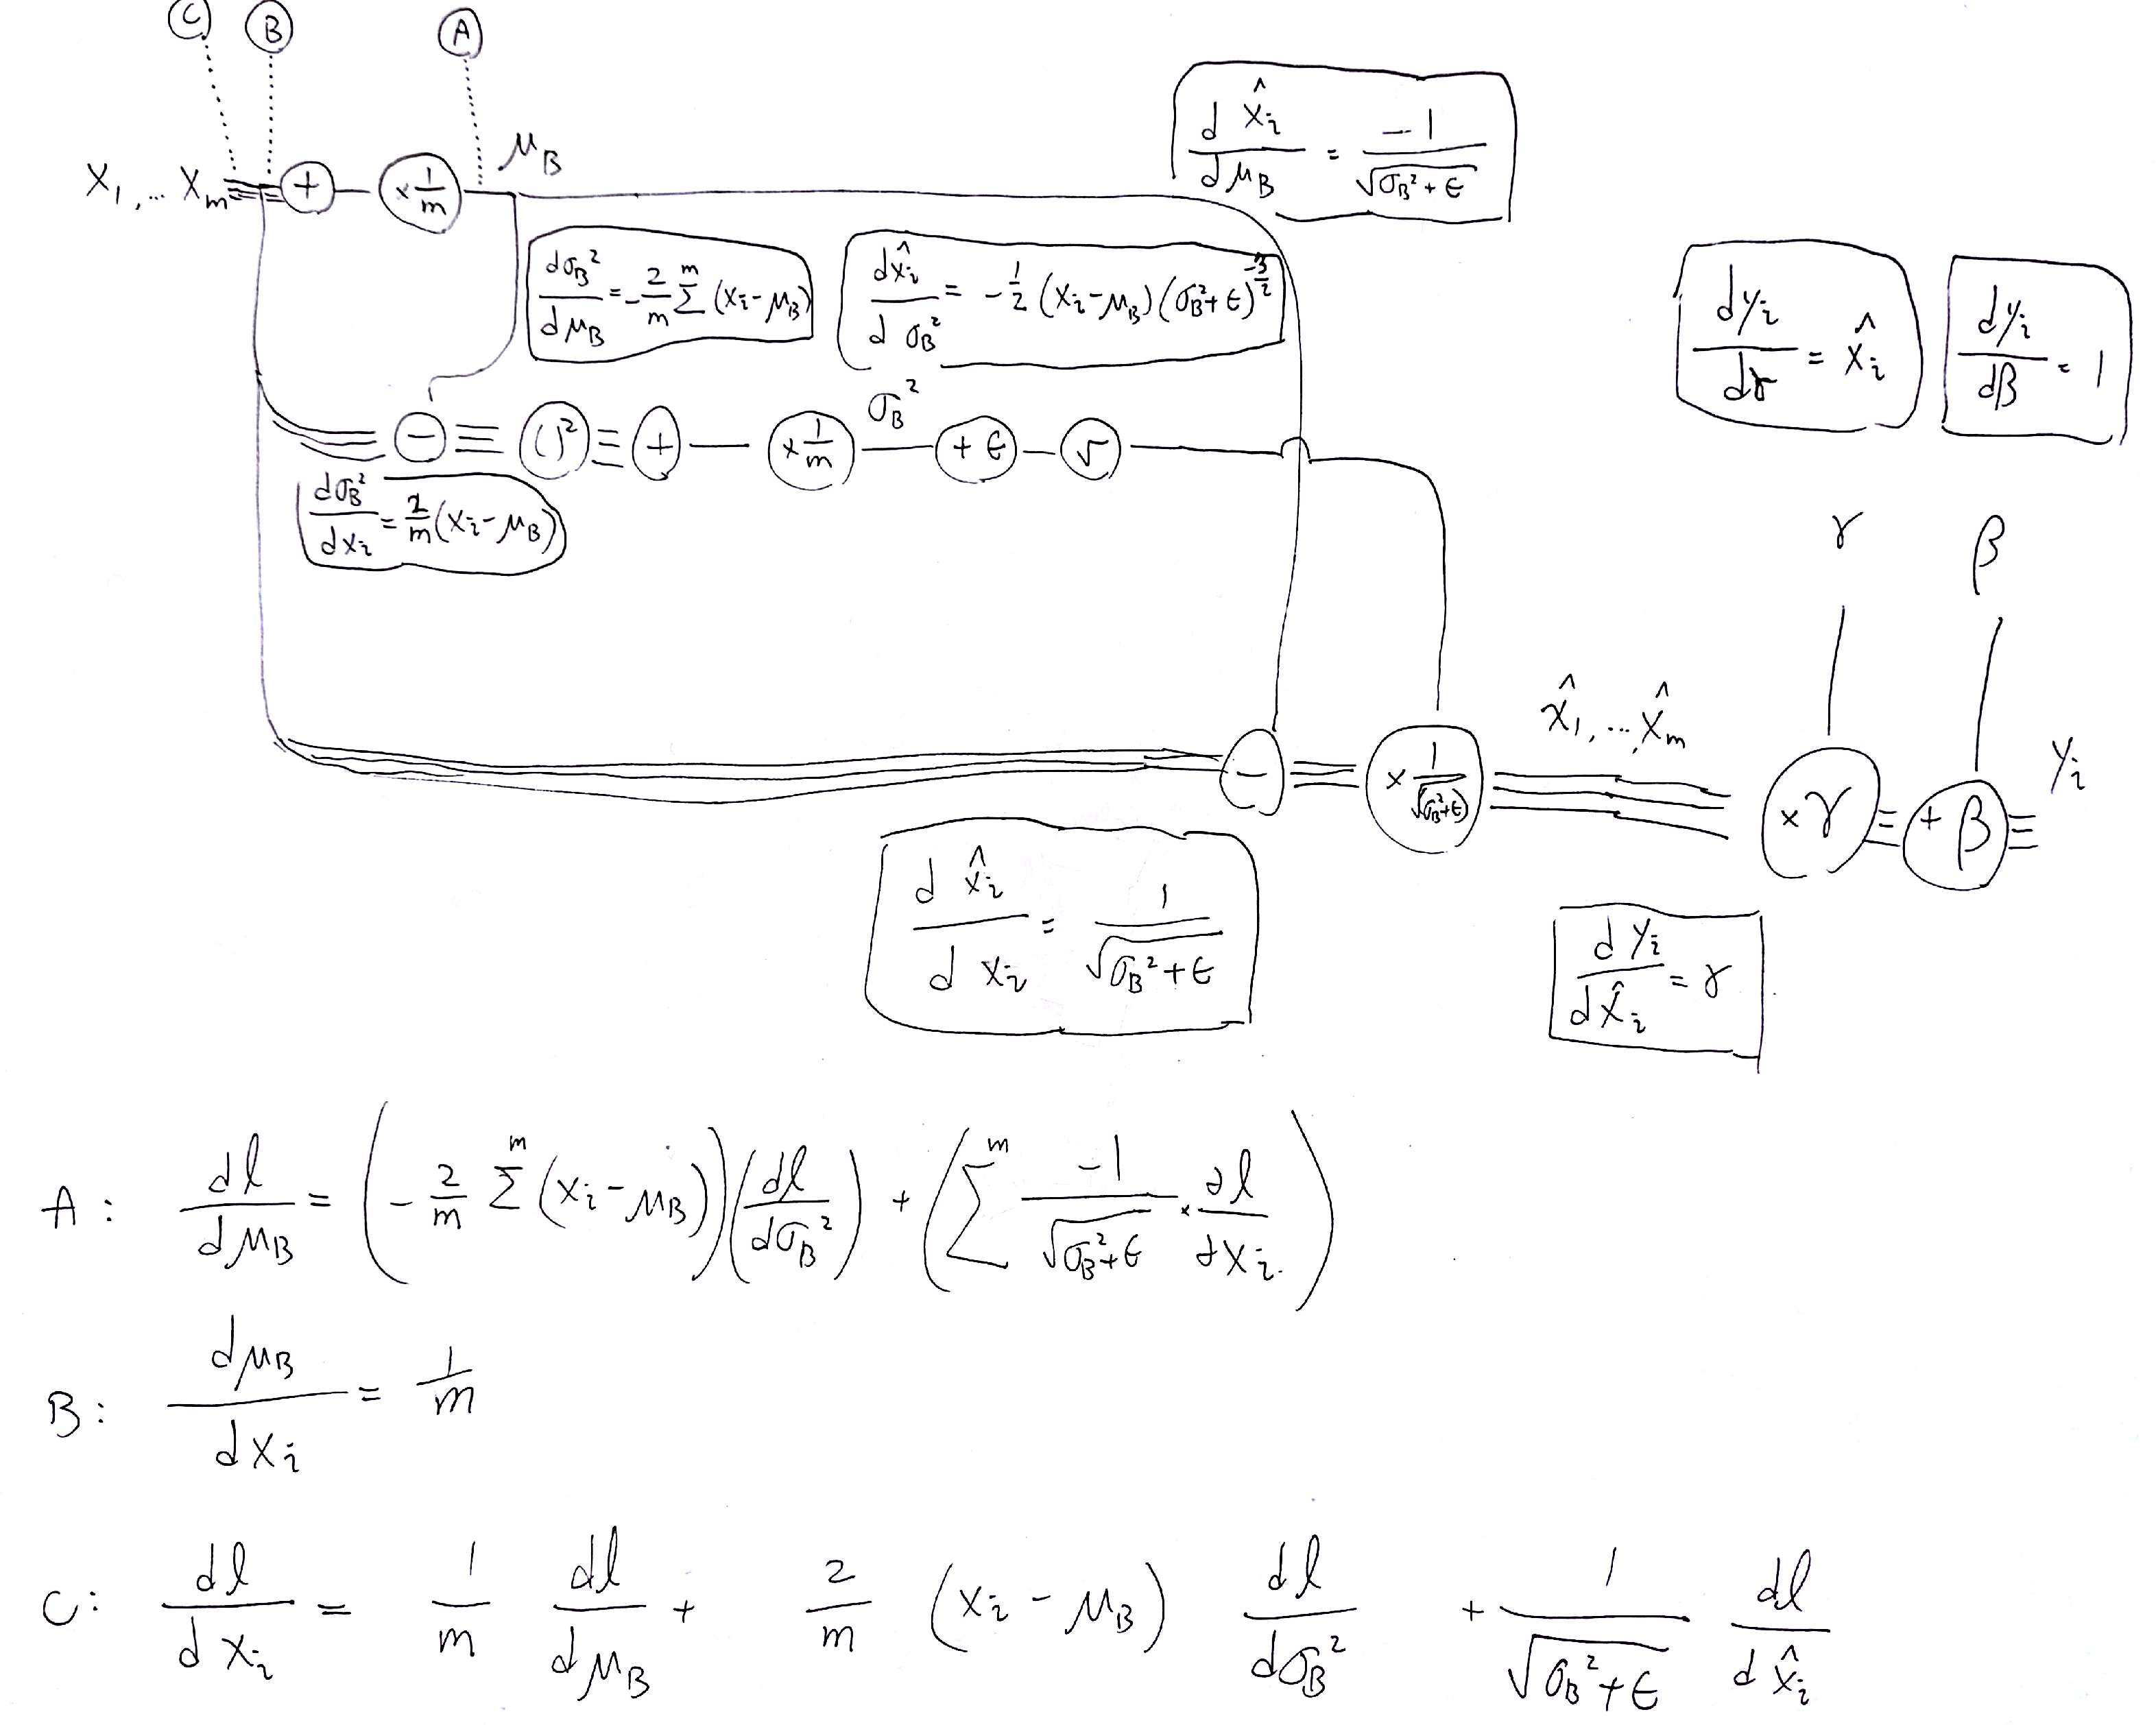 C B A
x₁, ... xₘ + × 1/m μ_B
d x̂ᵢ / d μ_B = -1 / √(σ_B² + ϵ)
dσ_B² / dμ_B = -2/m Σ^m (xᵢ - μ_B)
dx̂ᵢ / dσ_B² = -1/2 (xᵢ - μ_B) (σ_B² + ϵ)^(-3/2)
dyᵢ / dγ = x̂ᵢ
dyᵢ / dβ = 1
− ( )² + × 1/m σ_B² + ϵ √
dσ_B² / dxᵢ = 2/m (xᵢ - μ_B)
γ β
− × 1/√(σ_B² + ϵ) x̂₁, ..., x̂ₘ × γ + β yᵢ
d x̂ᵢ / d xᵢ = 1 / √(σ_B² + ϵ)
d yᵢ / d x̂ᵢ = γ
A: dl/dμ_B = (-2/m Σ^m (xᵢ - μ_B)) (dl/dσ_B²) + (Σ^m -1/√(σ_B² + ϵ) × ∂l/∂xᵢ)
B: dμ_B / dxᵢ = 1/m
C: dl/dxᵢ = 1/m dl/dμ_B + 2/m (xᵢ - μ_B) dl/dσ_B² + 1/√(σ_B² + ϵ) dl/dx̂ᵢ